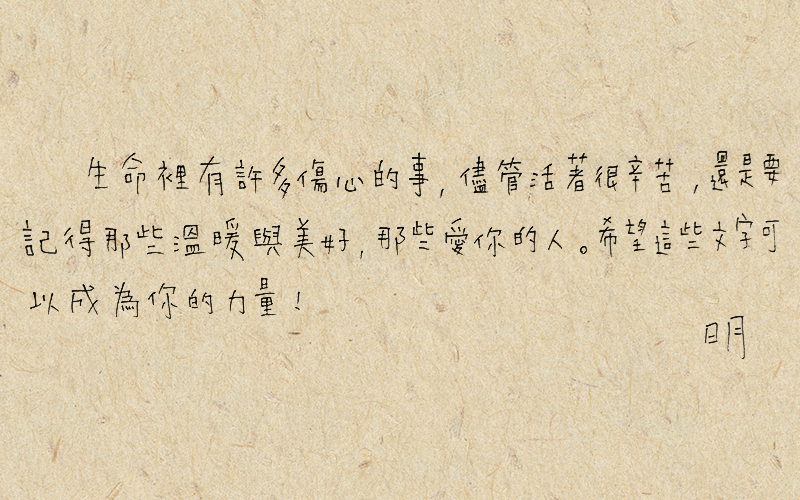 生命裡有許多傷心的事,儘管活著很辛苦,還是要
記得那些溫暖與美好,那些愛你的人。希望這些文字可
以成為你的力量!
明